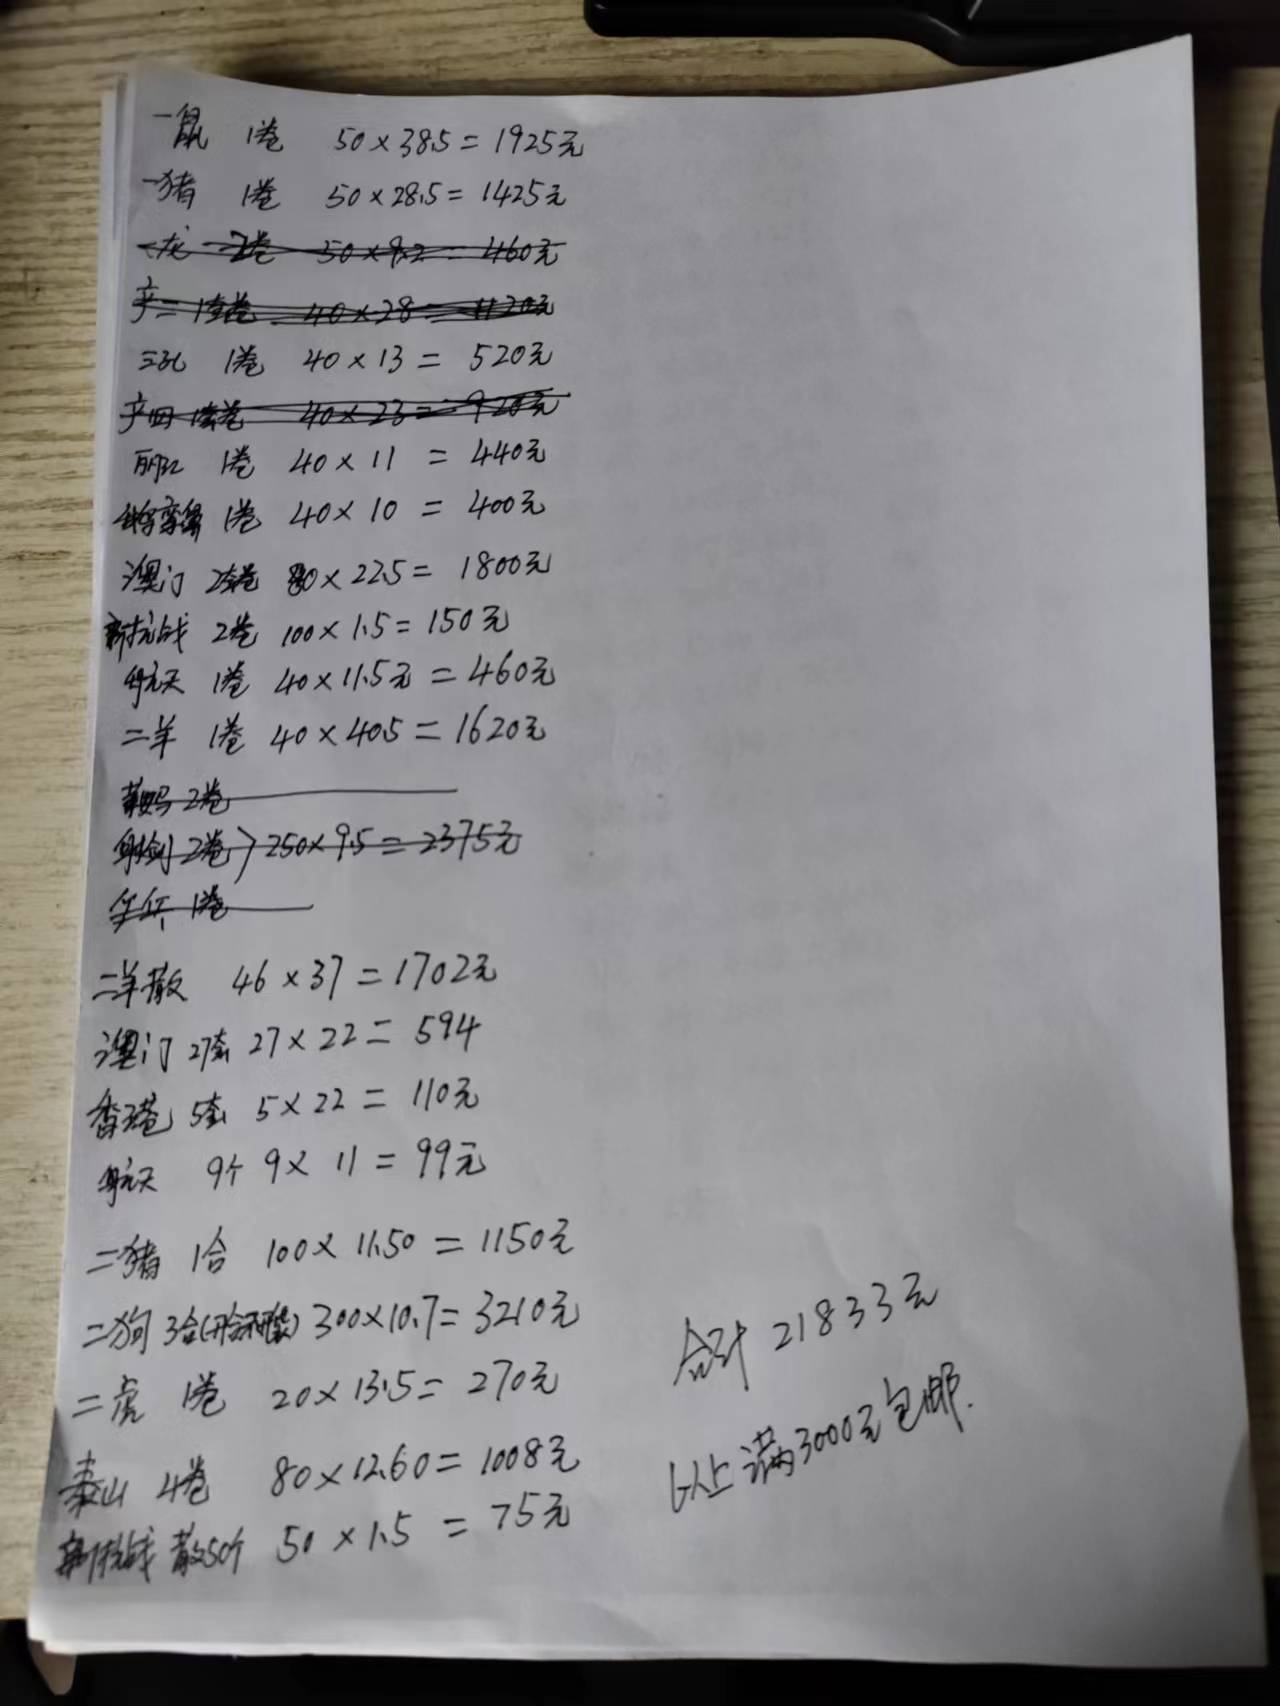 一鼠 1卷 50×38.5=1925元
一猪 1卷 50×28.5=1425元
龙 2卷 50×9.2=460元
产二 1套卷 40×28=1120元
三孔 1卷 40×13=520元
产四 1套卷 40×23=920元
丽江 1卷 40×11=440元
1卷 40×10=400元
澳门 2套卷 80×22.5=1800元
新抗战 2卷 100×1.5=150元
航天 1卷 40×11.5元=460元
二羊 1卷 40×40.5=1620元
2卷
2卷 250×9.5=2375元
1卷
二羊散 46×37=1702元
澳门 27套 27×22=594
香港 5套 5×22=110元
航天 9个 9×11=99元
二猪 1合 100×11.50=1150元
二狗 3合 300×10.7=3210元
二虎 1卷 20×13.5=270元
泰山 4卷 80×12.60=1008元
新抗战 散50个 50×1.5=75元
合计 21833元
以上满3000元包邮.